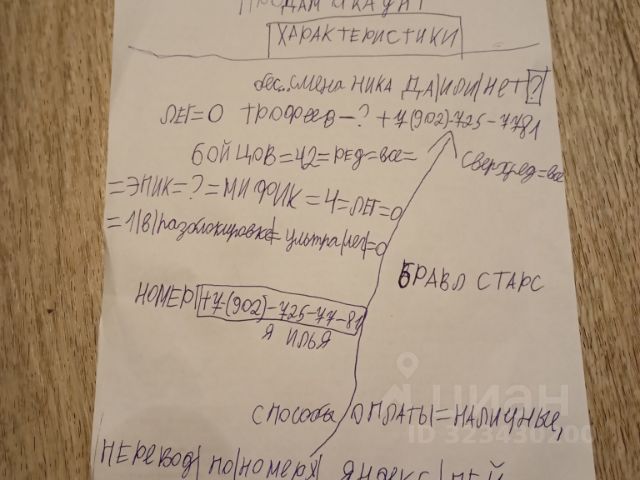 ПРОДАМ АКАУНТ
ХАРАКТЕРИСТИКИ
бес.. смена НИКА ДА/ИЛИ/НЕТ ?
ЛЕГ=0 ТРОФЕЕВ-? +7(902)-725-7781
БОЙЦОВ=42=РЕД=все=
СВЕРХРЕД=все
=ЭПИК=?=МИФИК=4=ЛЕГ=0
=1/В/разблокировке/=ультра/лег/=0
БРАВЛ СТАРС
НОМЕР +7-(902)-725-77-81
Я ИЛЬЯ
СПОСОБЫ ОПЛАТЫ=НАЛИЧНЫЕ,
ПЕРЕВОД/ПО/НОМЕРУ/ ЯНДЕКС/ПЕЙ
циан
ID 323430200